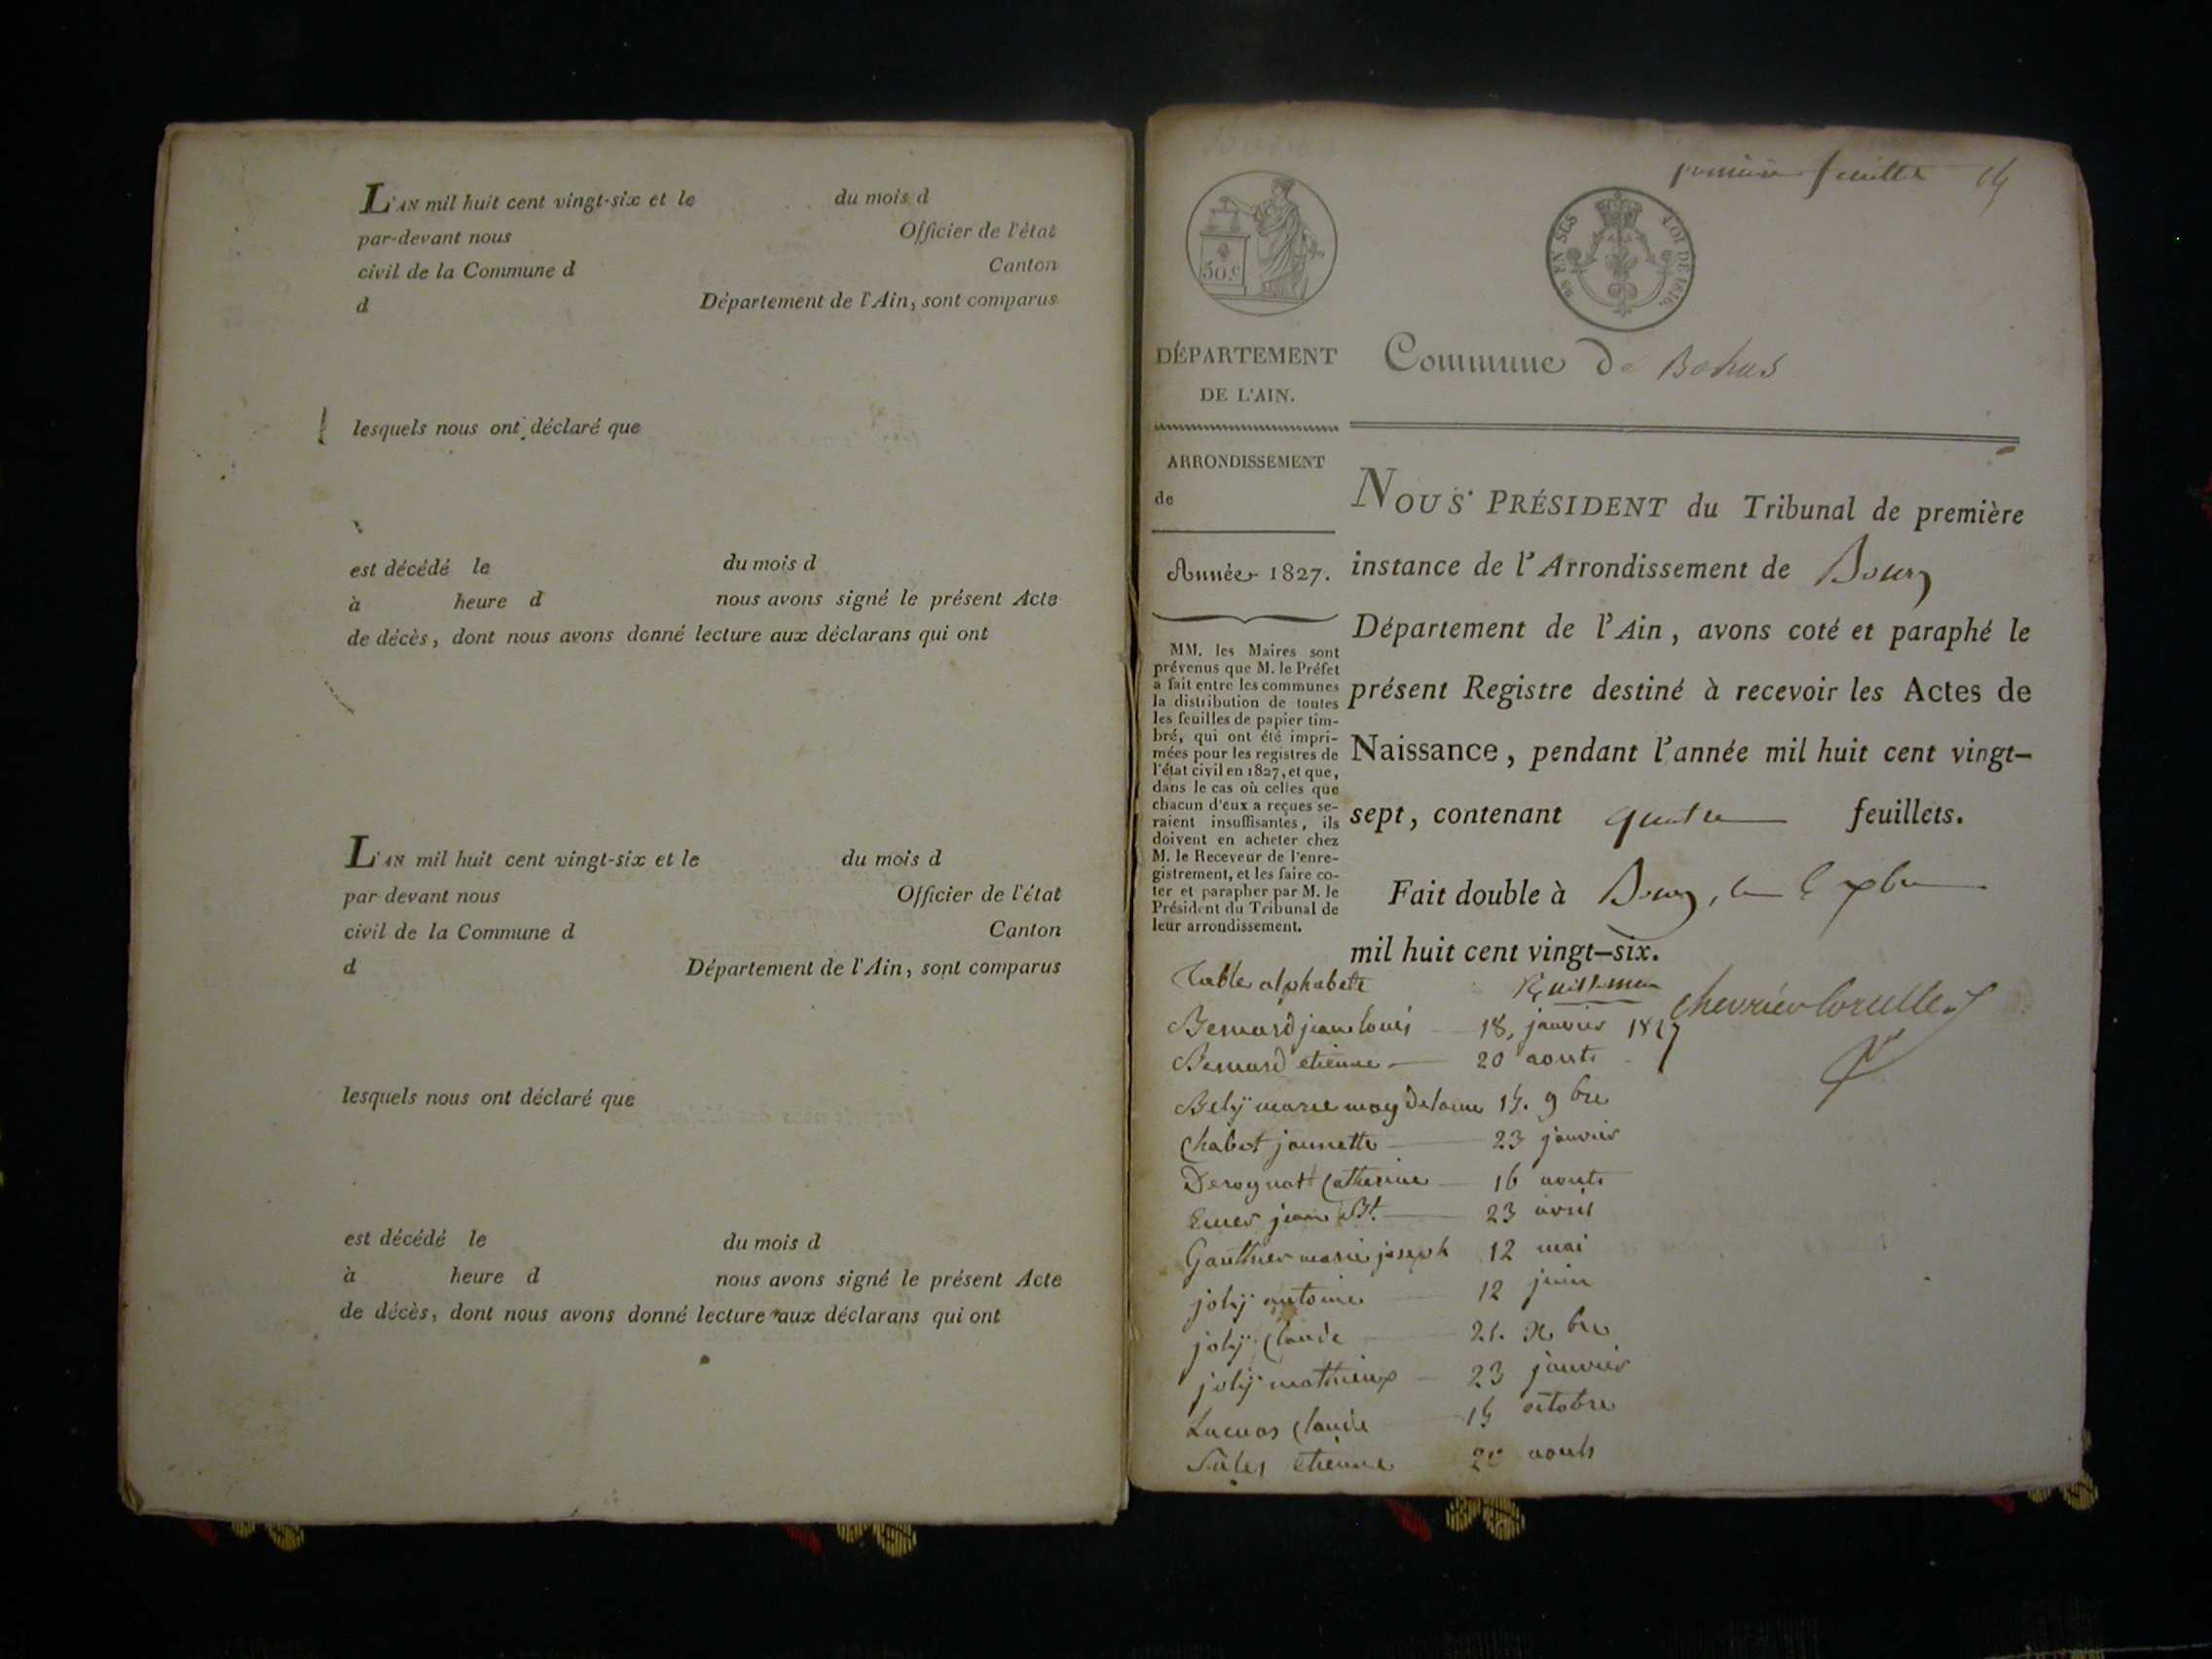 L'AN mil huit cent vingt-six et le du mois d
par-devant nous Officier de l'état
civil de la Commune d Canton
d Département de l'Ain, sont comparus
lesquels nous ont déclaré que
est décédé le du mois d
à heure d nous avons signé le présent Acte
de décès, dont nous avons donné lecture aux déclarans qui ont
L'AN mil huit cent vingt-six et le du mois d
par-devant nous Officier de l'état
civil de la Commune d Canton
d Département de l'Ain, sont comparus
lesquels nous ont déclaré que
est décédé le du mois d
à heure d nous avons signé le présent Acte
de décès, dont nous avons donné lecture aux déclarans qui ont
feuille
50.c
EN SUS LOI DE 1816.
DÉPARTEMENT
DE L'AIN.
Commune De Bohas
ARRONDISSEMENT
de
Année 1827.
MM. les Maires sont
prévenus que M. le Préfet
a fait entre les communes
la distribution de toutes
les feuilles de papier tim-
bré, qui ont été impri-
mées pour les registres de
l'état civil en 1827, et que,
dans le cas où celles que
chacun d'eux a reçues se-
raient insuffisantes, ils
doivent en acheter chez
M. le Receveur de l'enre-
gistrement, et les faire co-
ter et parapher par M. le
Président du Tribunal de
leur arrondissement.
NOUS PRÉSIDENT du Tribunal de première
instance de l'Arrondissement de Bourg
Département de l'Ain, avons coté et paraphé le
présent Registre destiné à recevoir les Actes de
Naissance, pendant l'année mil huit cent vingt-
sept, contenant quatre feuillets.
Fait double à Bourg, le xbre
mil huit cent vingt-six.
Table alphabete
Chevrier Corcelles
Bernard jean louis 18, janvier 1827
Bernard etienne 20 aouts
Bely marie magdelaine 14. 9bre
Chabot jannette 23 janvier
Derognat Catherine 16 aouts
jean Bt. 23 avril
Gauthier marie joseph 12 mai
joly antoine 12 juin
joly Claude 21. Xbre
joly mathieux 23 janvier
Claude 14 octobre
etienne aouts